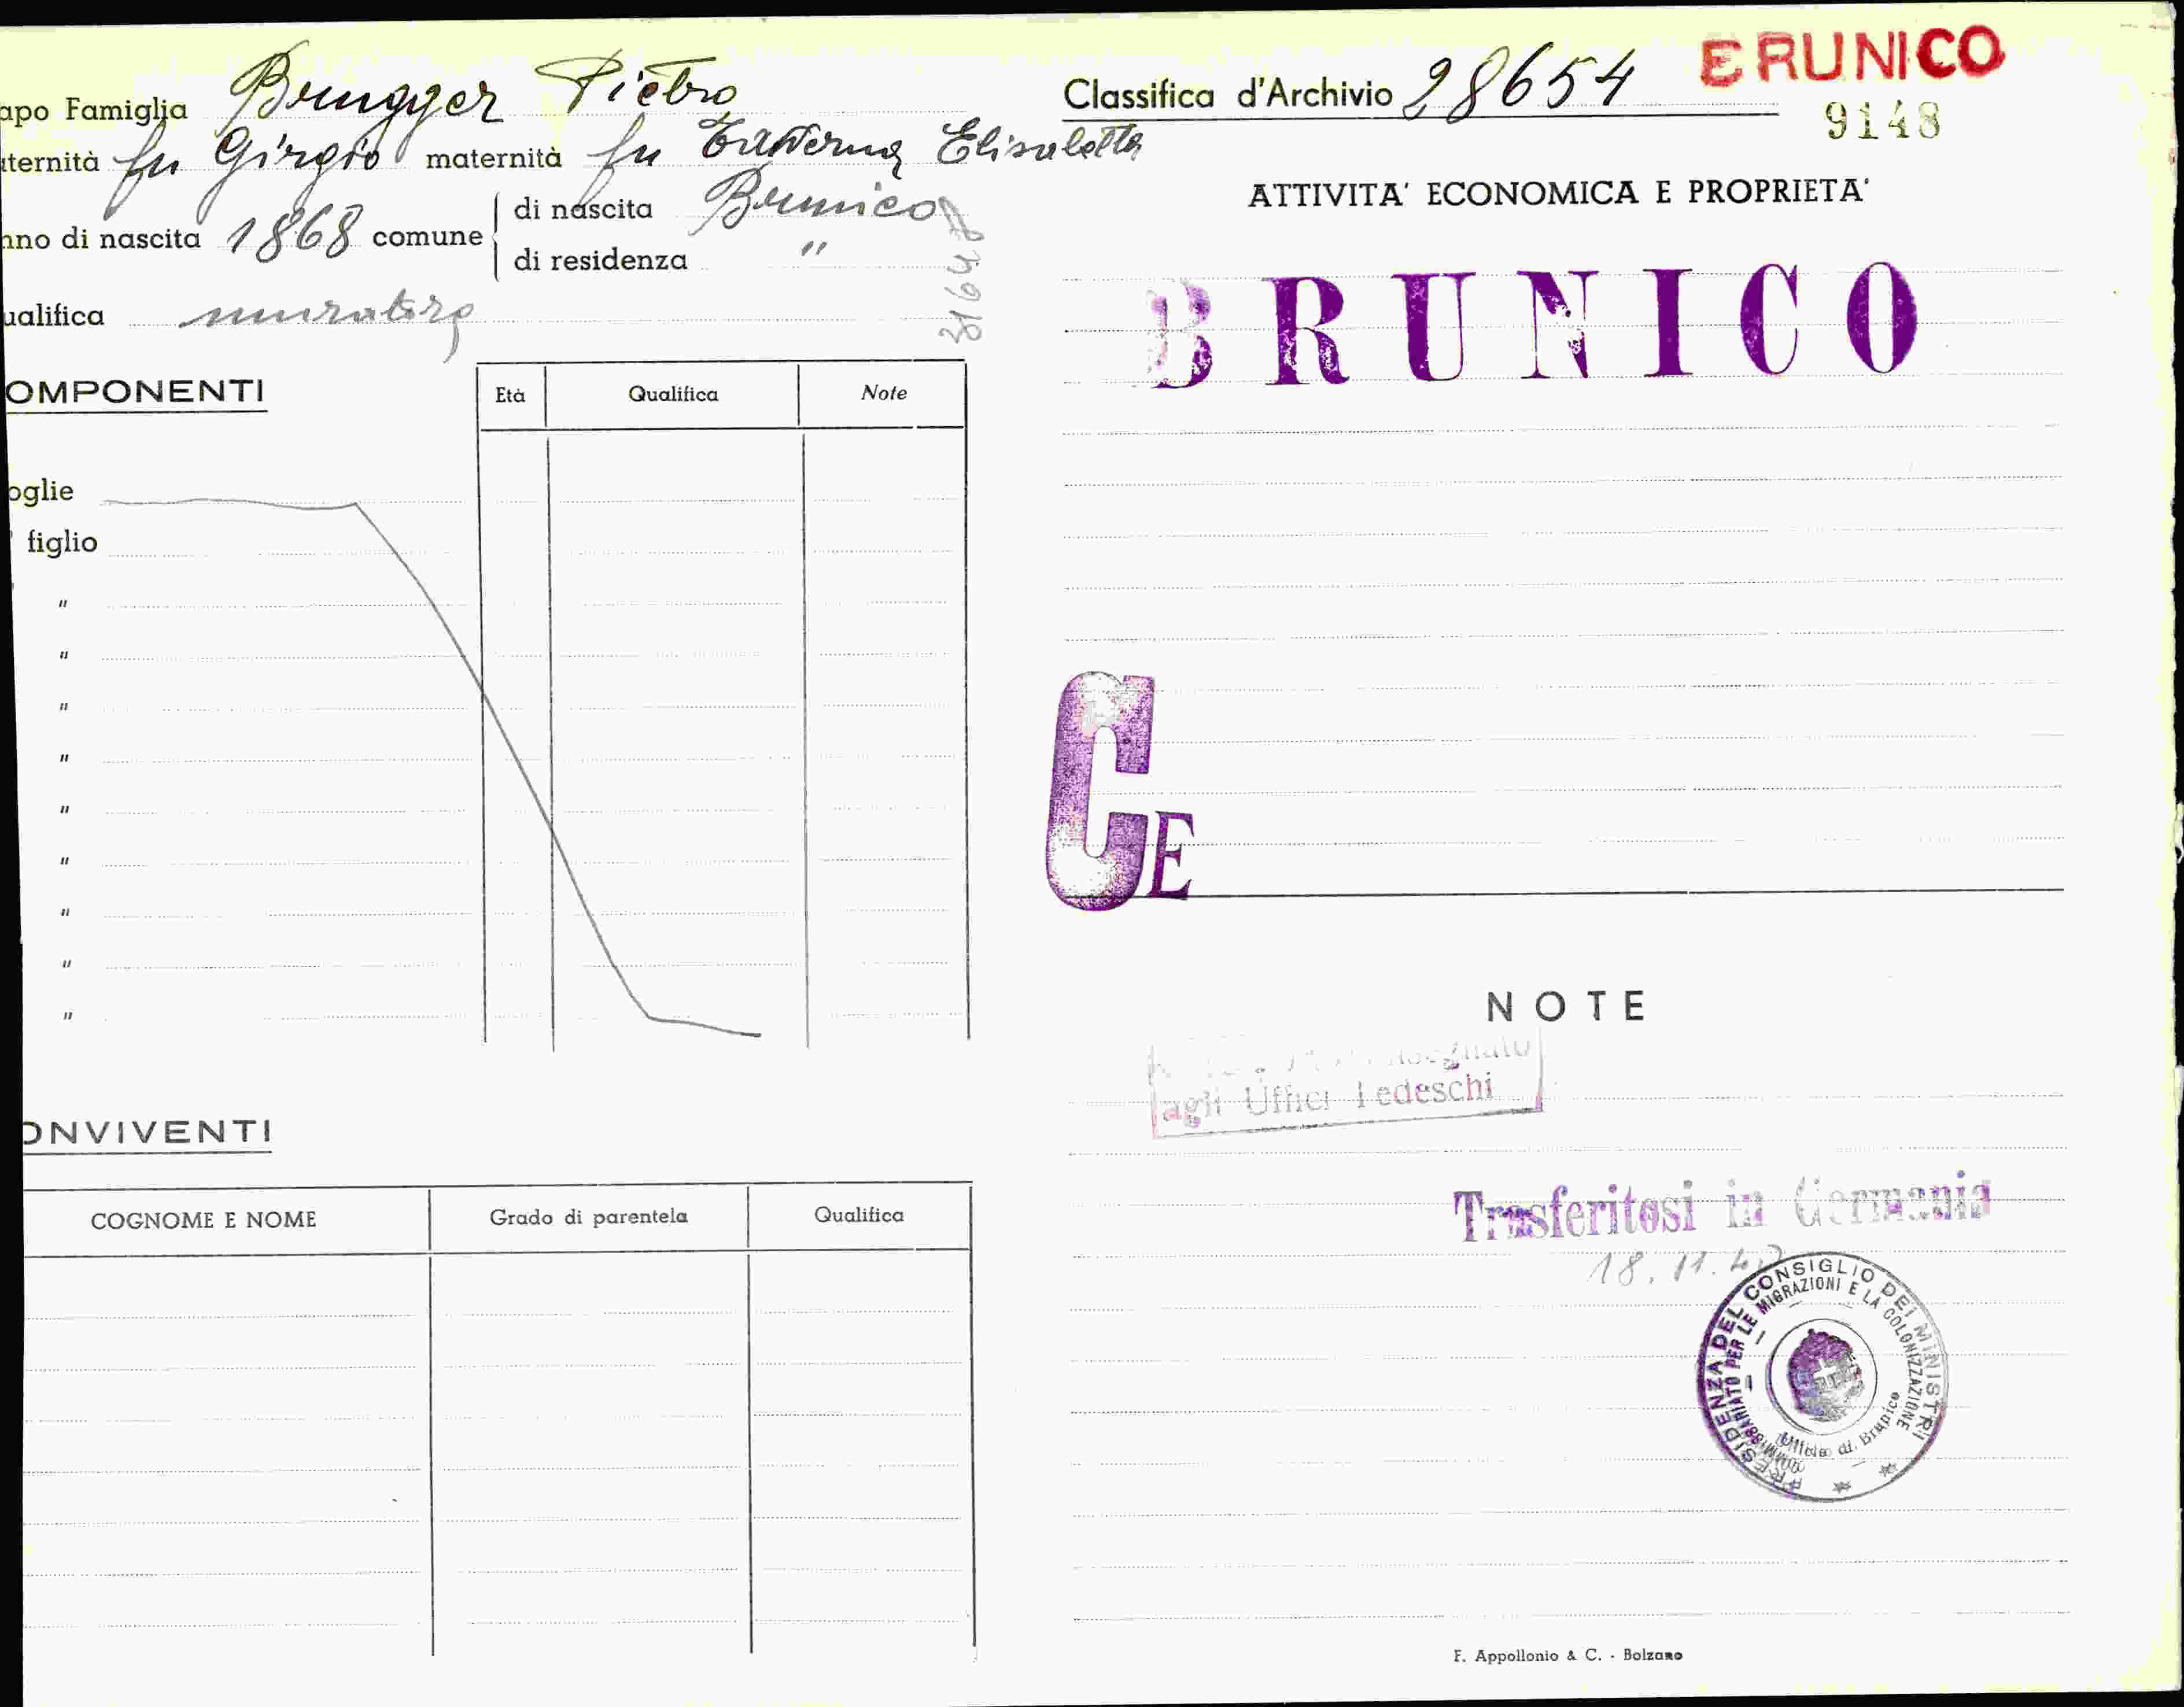 apo Famiglia Brugger Pietro
ternità fu Girgio maternità fu Elisabetta
nno di nascita 1868 comune
di nascita Brunico
di residenza "
ualifica muratore
31648
OMPONENTI
Età Qualifica Note
oglie
figlio
"
"
"
"
"
"
"
"
"
ONVIVENTI
COGNOME E NOME Grado di parentela Qualifica
Classifica d'Archivio 28654
ERUNICO
9148
ATTIVITA' ECONOMICA E PROPRIETA'
BRUNICO
CE
NOTE
agli Uffici Tedeschi
Trasferitosi in Germania
18.11.40
PRESIDENZA DEL CONSIGLIO DEI MINISTRI
COMMISSARIATO PER LE MIGRAZIONI E LA COLONIZZAZIONE
Ufficio di Brunico
F. Appollonio & C. - Bolzano